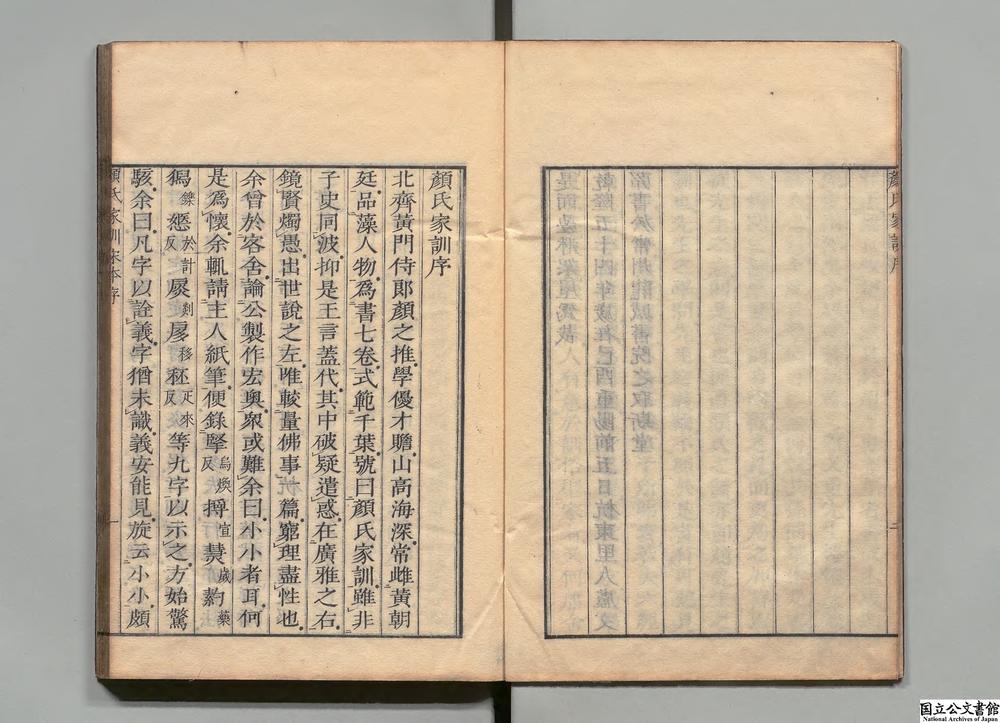 顏氏家訓序
顏氏家訓序
北齊黃門侍郎顏之推學優才贍山高海深常雌黃朝
廷品藻人物爲書七卷式範千葉號曰顏氏家訓雖非
子史同波抑是王言蓋代其中破疑遣惑在廣雅之右
鏡賢燭愚出世說之左唯較量佛事一篇窮理盡性也
余曾於客舍論公製作宏奧衆或難余曰小小者耳何
是爲懷余輒請主人紙筆便錄掔烏煥反揎宣熭歲藥
獡鑠於計反扊剡扅移秠疋來反等九字以示之方始驚
駭余曰凡字以詮義字猶未識義安能見旋云小小頗
顏氏家訓宋本序 一
国立公文書館
National Archives of Japan